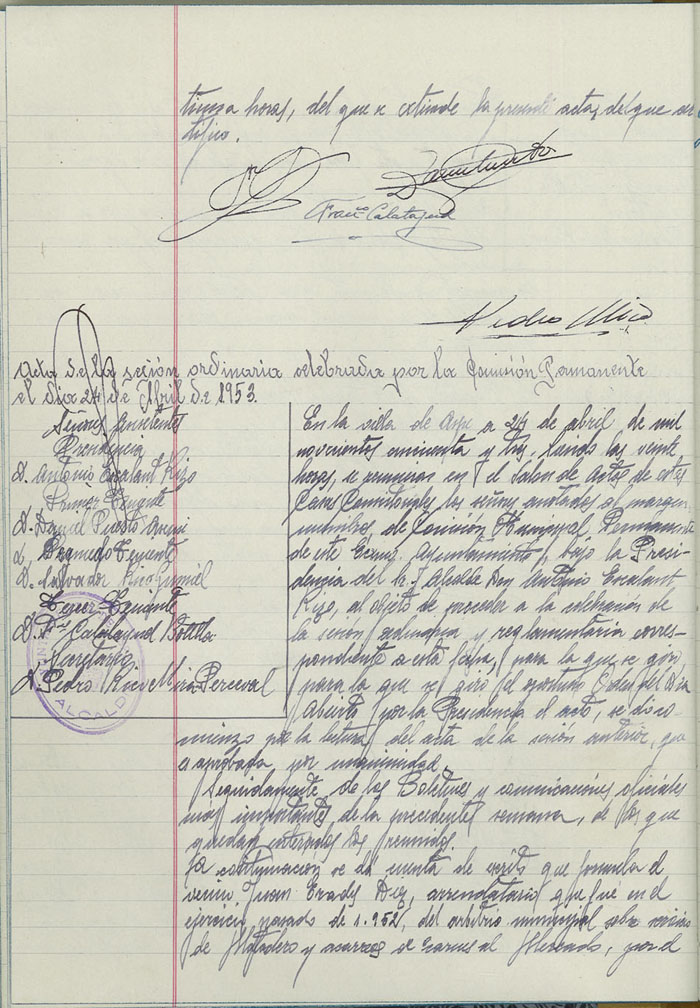 horas, del que se extiende la presente acta, del que cer
tifico.
Franco Calatayud
Pedro Mira
Acta de la sesión ordinaria celebrada por la Comisión Permanente
el día 24 de Abril de 1953.
Señores Asistentes
Presidencia
D. Antonio Escalant Rizo
Primer Teniente
D. Daniel Puerto
Segundo Teniente
D. Salvador Rico
Tercer Teniente
D. Calatayud Botella
Secretario
D. Pedro Rico Mira Perceval
ALCALD
En la villa de Aspe a 24 de abril, de mil
novecientos cincuenta y tres, siendo las veinte
horas, se reunieron en el Salon de Actos de estas
Casas Consistoriales los señores anotados al margen
miembros de Comision Municipal Permanente
de este Excmo. Ayuntamiento, bajo la Presi-
dencia del Sr. Alcalde Don Antonio Escalant
Rizo, al objeto de proceder a la celebración de
la sesión ordinaria y reglamentaria corres-
pondiente a esta fecha, para la que se giró
para la que se giró el oportuno Orden del Dia
Abierto por la Presidencia el acto, se dió co-
mienzo por la lectura del acta de la sesión anterior, que
es aprobada por unanimidad.
Seguidamente de los Boletines y comunicaciones oficiales
más importantes de la precedente semana, de los que
quedan enterados los reunidos.
A continuación se da cuenta de escrito que formula el
vecino Juan Erades Diez, arrendatario que fué en el
ejercicio pasado de 1.952, del arbitrio municipal sobre servicios
de Matadero y acarreos de carnes al Mercado, por el